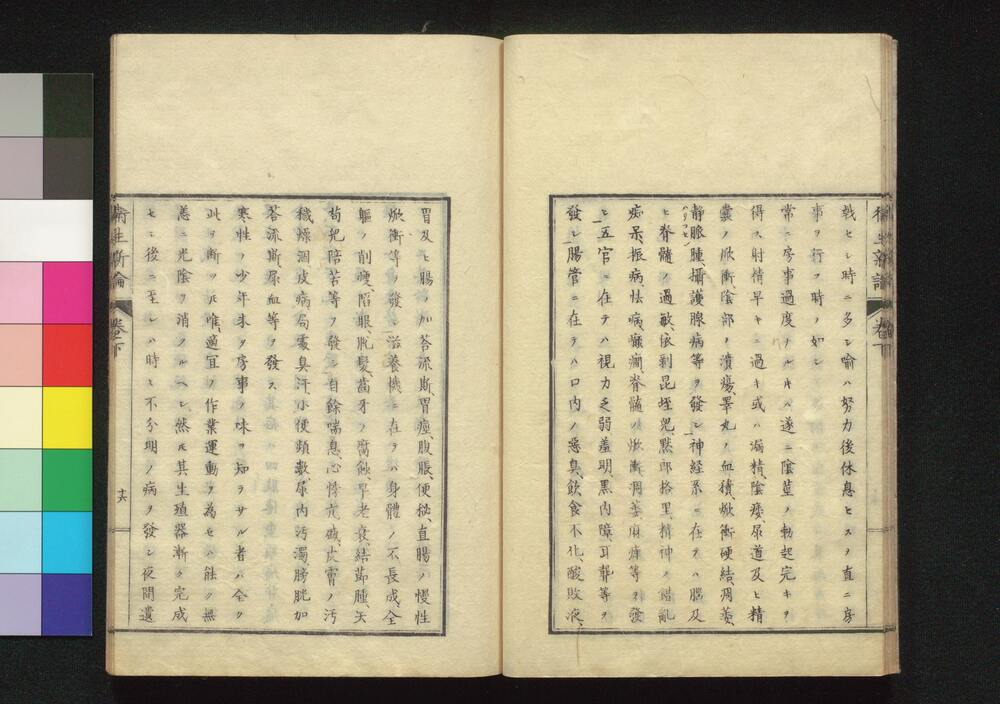 衛生新論
卷下
戟セシ時ニ多シ喩ハ努力後休息ヒスヲ直ニ房
事ヲ行フ時ノ如シ
常ニ房事過度ナルキハ遂ニ陰莖ノ勃起完キヲ
得ス射情早キニ過キ或ハ漏精、陰痿、尿道及ヒ精
囊ノ焮衝、陰部ノ潰瘍、睪丸ノ血積、焮衝硬結、凋萎、
静脈腫、攝護腺病等ヲ發シ神経系ニ在テハ腦及
ヒ脊髓ノ過敏、依剝昆垤兒、黙郎格里、精神ノ錯亂
ハリフセン
痴呆、振病、怯病、癲癇、脊髓ノ焮衝凋萎麻痺等ヲ發
シ五官ニ在テハ視力乏弱羞明黒内障、耳聾等ヲ
發シ腸管ニ在テハ口内ノ悪臭、飲食不化、酸敗液、
胃及ヒ腸ノ加荅流斯、胃痙、腹脹、便秘、直腸ノ慢性
焮衝等ヲ發シ滋養機ニ在テハ身體ノ不長成、全
軀ノ削瘦、陷眼、脱髮、齒牙ノ腐蝕、早老衰、結節腫、失
苟兒陪苦等ヲ發シ自餘喘息、心悸亢
穢燥涸皮病、局處臭汗、小便頻數、尿内汚濁、膀胱加
荅流斯、尿血等ヲ發ス
寒性ノ少年未タ房事ノ味ヲ知ラサル者ハ全ク
此ヲ断ツ凡唯適宜ノ作業運動ヲ為セハ能ク無
恙ニ光陰ヲ消ノルヘシ然凡其生殖器漸ク完成
セシ後ニ至レハ時ヒ不分明ノ病ヲ發シ夜間遺
衛生新論
卷下
十六